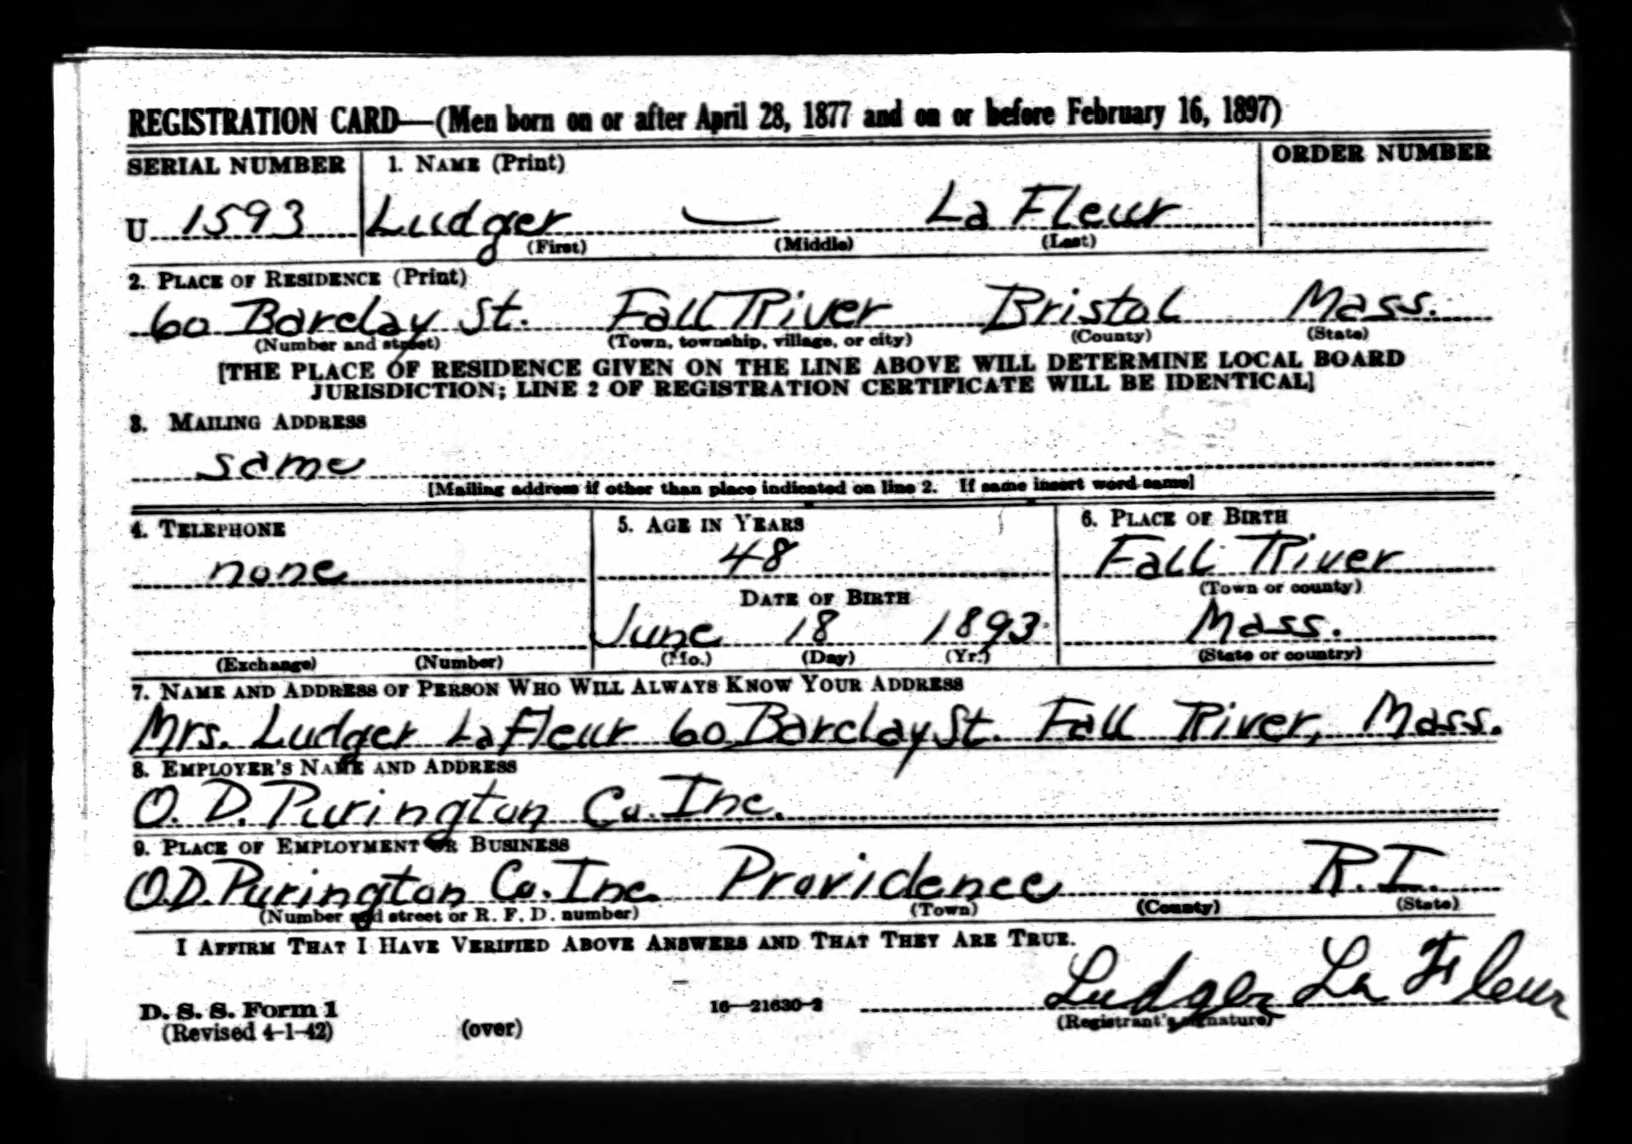 REGISTRATION CARD—(Men born on or after April 28, 1877 and on or before February 16, 1897)
SERIAL NUMBER 1. NAME (Print) ORDER NUMBER
U 1593 Ludger — La Fleur
(First) (Middle) (Last)
2. PLACE OF RESIDENCE (Print)
60 Barclay St. Fall River Bristol Mass.
(Number and street) (Town, township, village, or city) (County) (State)
[THE PLACE OF RESIDENCE GIVEN ON THE LINE ABOVE WILL DETERMINE LOCAL BOARD
JURISDICTION; LINE 2 OF REGISTRATION CERTIFICATE WILL BE IDENTICAL]
3. MAILING ADDRESS
same
[Mailing address if other than place indicated on line 2. If same insert word same]
4. TELEPHONE 5. AGE IN YEARS 6. PLACE OF BIRTH
none 48 Fall River
DATE OF BIRTH (Town or county)
June 18 1893 Mass.
(Exchange) (Number) (Mo.) (Day) (Yr.) (State or country)
7. NAME AND ADDRESS OF PERSON WHO WILL ALWAYS KNOW YOUR ADDRESS
Mrs. Ludger LaFleur 60 Barclay St. Fall River, Mass.
8. EMPLOYER'S NAME AND ADDRESS
O. D. Purington Co. Inc.
9. PLACE OF EMPLOYMENT OR BUSINESS
O.D. Purington Co. Inc. Providence R.I.
(Number and street or R. F. D. number) (Town) (County) (State)
I AFFIRM THAT I HAVE VERIFIED ABOVE ANSWERS AND THAT THEY ARE TRUE.
Ludger La Fleur
D. S. S. Form 1 16—21630-2
(Revised 4-1-42) (over) (Registrant's signature)